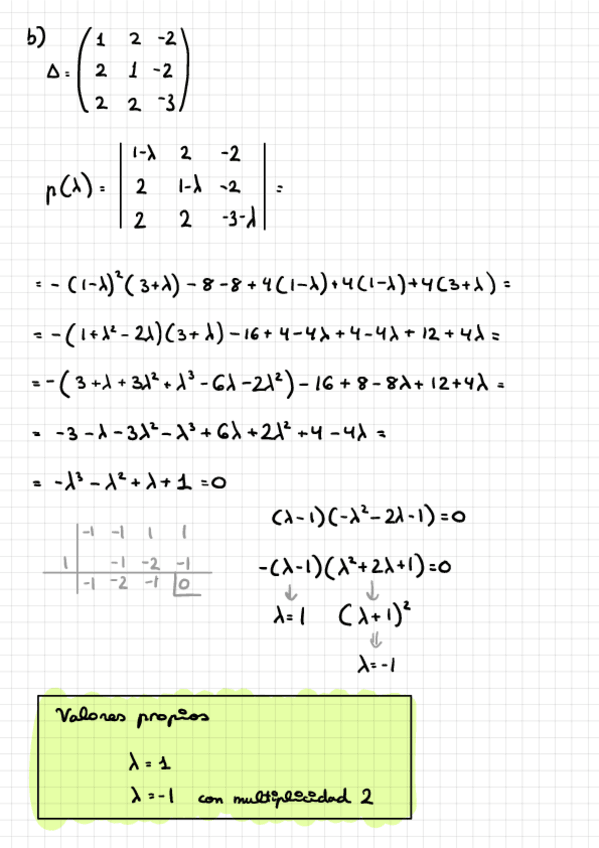 b)
Δ = ( 1 2 -2
2 1 -2
2 2 -3 )
p(λ) = | 1-λ 2 -2
2 1-λ -2
2 2 -3-λ | =
= -(1-λ)²(3+λ) - 8 - 8 + 4(1-λ) + 4(1-λ) + 4(3+λ) =
= -(1+λ²-2λ)(3+λ) - 16 + 4 - 4λ + 4 - 4λ + 12 + 4λ =
= -(3+λ+3λ²+λ³-6λ-2λ²) - 16 + 8 - 8λ + 12 + 4λ =
= -3 - λ - 3λ² - λ³ + 6λ + 2λ² + 4 - 4λ =
= -λ³ - λ² + λ + 1 = 0
-1 -1 1 1
1 -1 -2 -1
-1 -2 -1 0
(λ-1)(-λ²-2λ-1) = 0
-(λ-1)(λ²+2λ+1) = 0
↓ ↓
λ=1 (λ+1)²
⇓
λ=-1
Valores propios
λ = 1
λ = -1 con multiplicidad 2